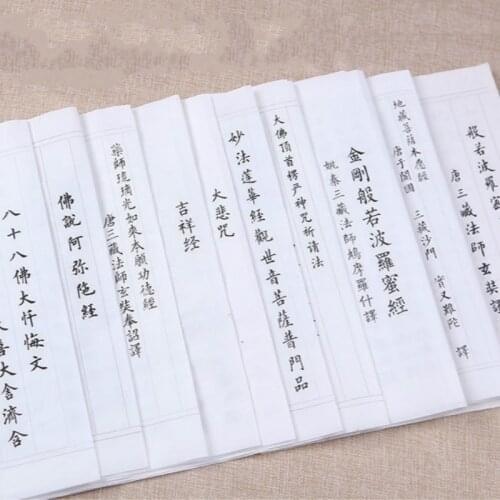 般若波羅蜜
唐三藏法師玄奘譯
地藏菩薩本愿經
唐于闐國
三藏沙門
實叉難陀
譯
金剛般若波羅蜜經
姚秦三藏法師鳩摩羅什譯
大佛頂首楞严神咒祈请法
妙法蓮華經觀世音菩薩普門品
大悲咒
吉祥经
藥師琉璃光如來本願功德經
唐三藏法師玄奘奉詔譯
佛說阿弥陀经
八十八佛大忏悔文
大喜大舍濟含